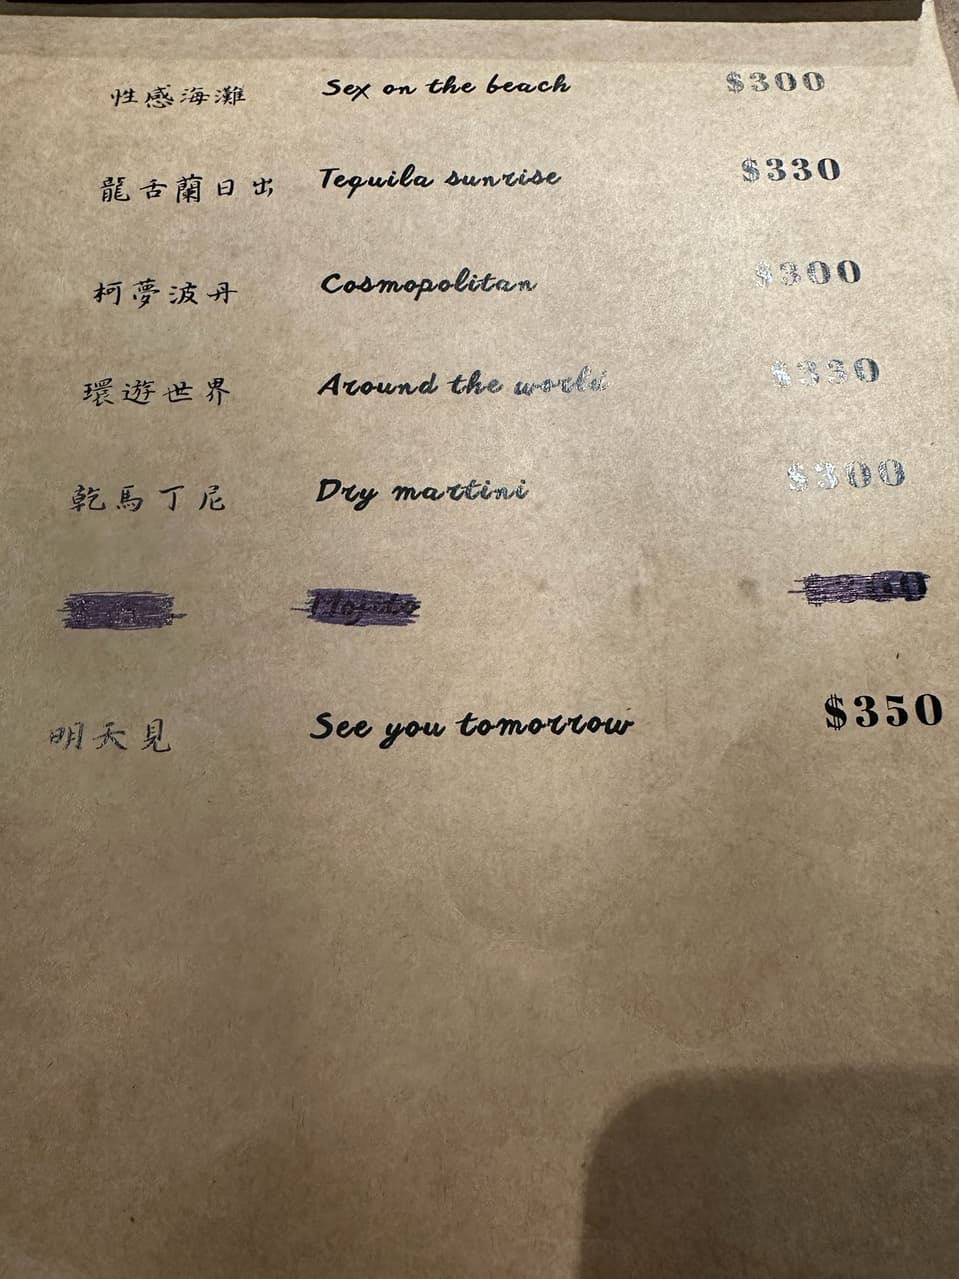 性感海灘 Sex on the beach $300
龍舌蘭日出 Tequila sunrise $330
柯夢波丹 Cosmopolitan $300
環遊世界 Around the world $330
乾馬丁尼 Dry martini $300
Mojito
明天見 See you tomorrow $350